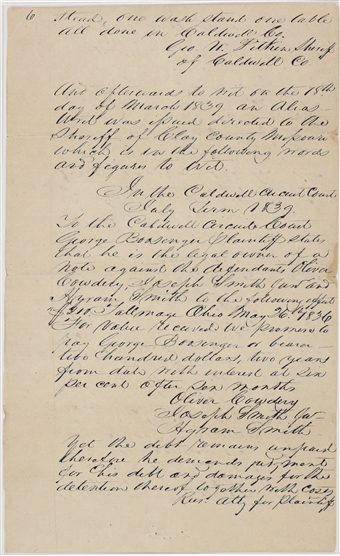 6 Stead, one wash stand one table
all done in Caldwell Co.
Geo. W. Pitkin Sheriff
of Caldwell Co
And afterwards to wit on the 18th
day of March 1839 an Alias
Writ was issued directed to the
Sheriff of Clay County Missouri
which is in the following words
and figures to wit.
In the Caldwell Circuit Court
July Term 1839
To the Caldwell Circuit Court
George Bossenger Plaintiff states
that he is the legal owner of a
note against the defendants Oliver
Cowdery, Joseph Smith Jur and
Hyram Smith to the following effect
Tallmage Ohio May 26. 1836
For value received we promise to
pay George Bossenger or bearer
two hundred dollars, two years
from date with interest at six
per cent after six months
Oliver Cowdery
Joseph Smith Jur
Hyram Smith
Yet the debt remains unpaid
therefore he demands judgment
for his debt and damages for the
detention thereof together with costs
Atty for Plaintiff